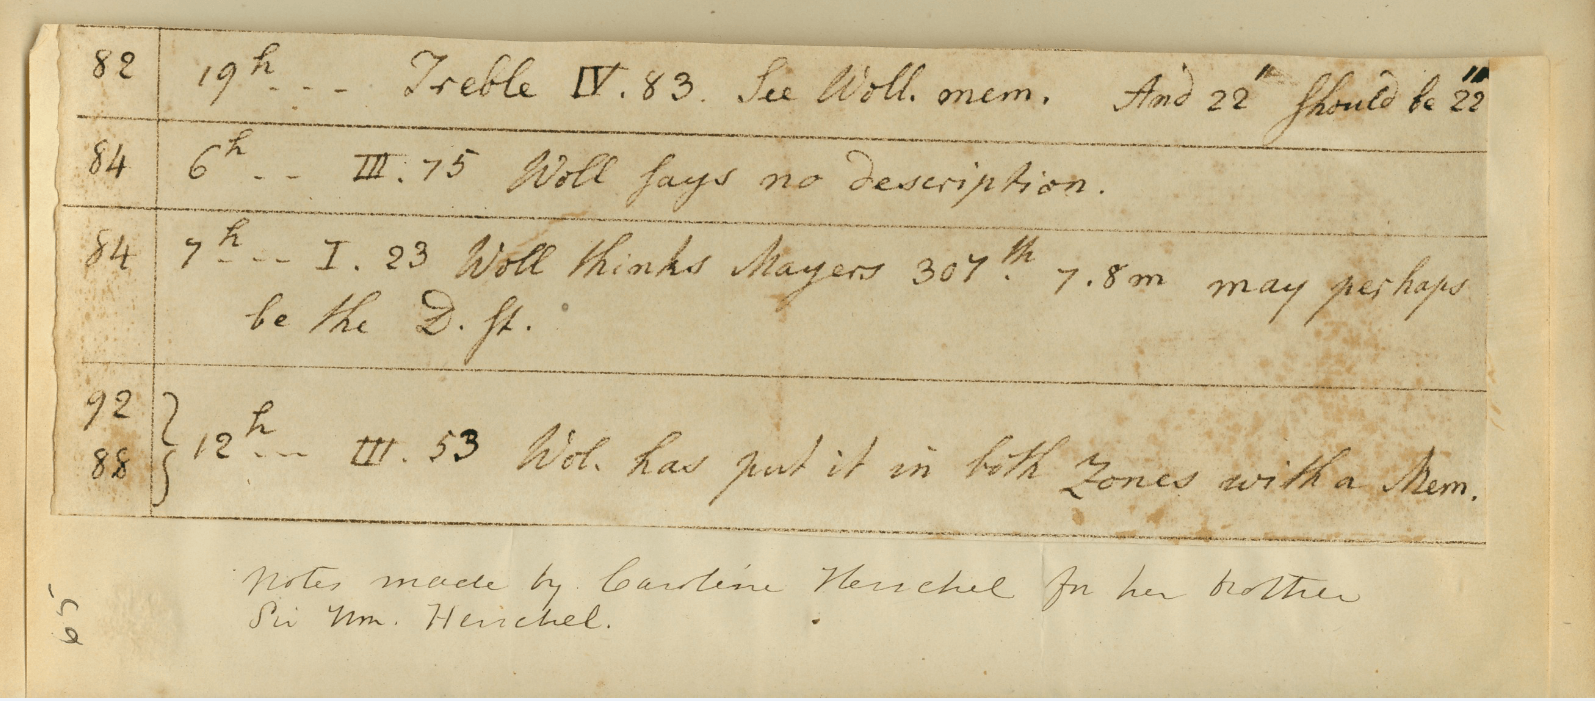 82 19h - - - Treble IV. 83. See Woll. mem. And 22" should be 22'''
84 6h - - III. 75 Woll says no description.
84 7h - - - I. 23 Woll thinks Mayers 307th 7.8m may perhaps
be the D. st.
92
88 } 12h - - - III. 53 Wol. has put it in both Zones with a Mem.
Notes made by Caroline Herschel for her brother
Sir Wm. Herschel.
65